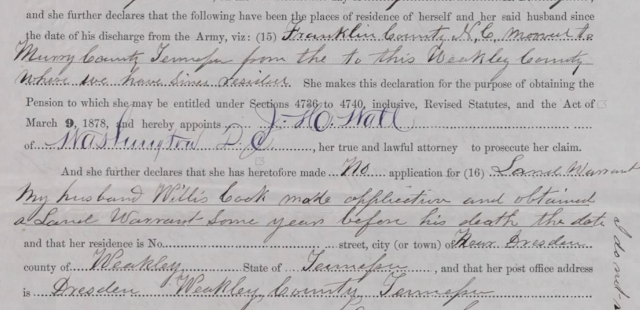 and she further declares that the following have been the places of residence of herself and her said husband since
the date of his discharge from the Army, viz: (15) Franklin County N.C. Moved to
Murry County Tennessee from the to this Weakley County
where we have since resided She makes this declaration for the purpose of obtaining the
Pension to which she may be entitled under Sections 4736 to 4740, inclusive, Revised Statutes, and the Act of
March 9, 1878, and hereby appoints J. H. Wall
of Washington D.C., her true and lawful attorney to prosecute her claim.
And she further declares that she has heretofore made No application for (16) Land Warrant
My husband Willis Cook made application and obtained
a Land Warrant some years before his death the date
and that her residence is No. street, city (or town) of Near Dresden
county of Weakley State of Tennessee, and that her post office address
is Dresden Weakley County Tennessee
I do not